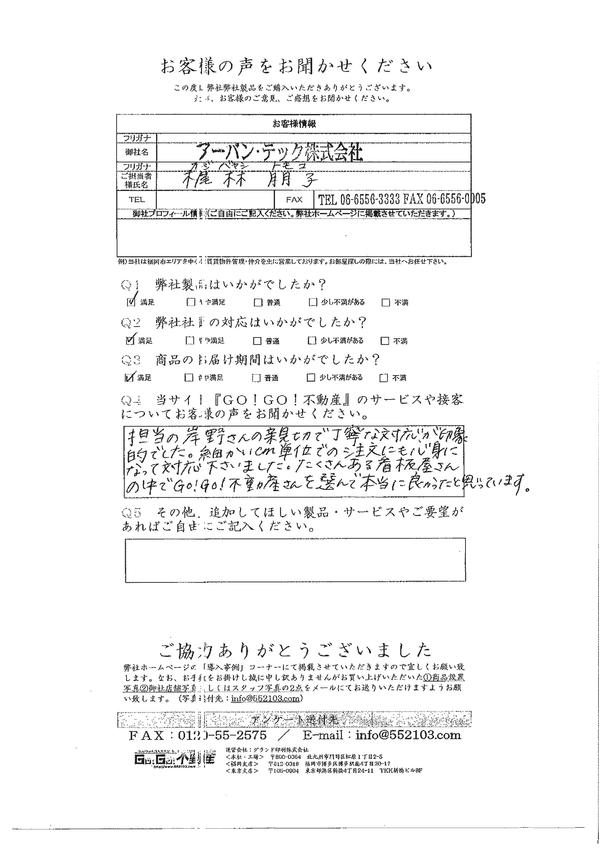 お客様の声をお聞かせください
この度は弊社弊社製品をご購入いただきありがとうございます。
お客様のご意見、ご感想をお聞かせください。
お客様情報
フリガナ
御社名 アーバン・テック株式会社
フリガナ カジバヤシ トモコ
ご担当者様氏名 梶林 朋子
TEL FAX TEL 06-6556-3333 FAX 06-6556-0005
御社プロフィール情報(ご自由にご記入ください。弊社ホームページに掲載させていただきます。)
例)当社は福岡市エリアを中心に賃貸物件管理・仲介を主に営業しております。お部屋探しの際には、当社へお任せ下さい。
Q1 弊社製品はいかがでしたか?
☑満足 □やや満足 □普通 □少し不満がある □不満
Q2 弊社社員の対応はいかがでしたか?
☑満足 □やや満足 □普通 □少し不満がある □不満
Q3 商品のお届け期間はいかがでしたか?
☑満足 □やや満足 □普通 □少し不満がある □不満
Q4 当サイト『GO!GO!不動産』のサービスや接客
についてお客様の声をお聞かせください。
担当の岸野さんの親切で丁寧な対応が印象
的でした。細かいcm単位での注文にも心身に
なって対応下さいました。たくさんある看板屋さん
の中でGO!GO!不動産さんを選んで本当に良かったと思っています。
Q5 その他、追加してほしい製品・サービスやご要望が
あればご自由にご記入ください。
ご協力ありがとうございました
弊社ホームページの「導入事例」コーナーにて掲載させていただきますので宜しくお願い致
します。なお、お手数をお掛けし誠に申し訳ありませんがお買い上げいただいた①商品設置
写真②御社店舗写真もしくはスタッフ写真の2点をメールにてお送りいただけますようお願
い致します。(写真送付先:info@552103.com)
アンケート送付先
FAX:0120-55-2575 / E-mail:info@552103.com
GO!GO!不動産
運営会社:グランド印刷株式会社
<本社・工場> 〒800-0064 北九州市門司区松原1丁目2-5
<福岡支店> 〒812-0016 福岡市博多区博多駅南4丁目20-17
<東京支店> 〒105-0004 東京都港区新橋4丁目24-11 YKK新橋ビル8F